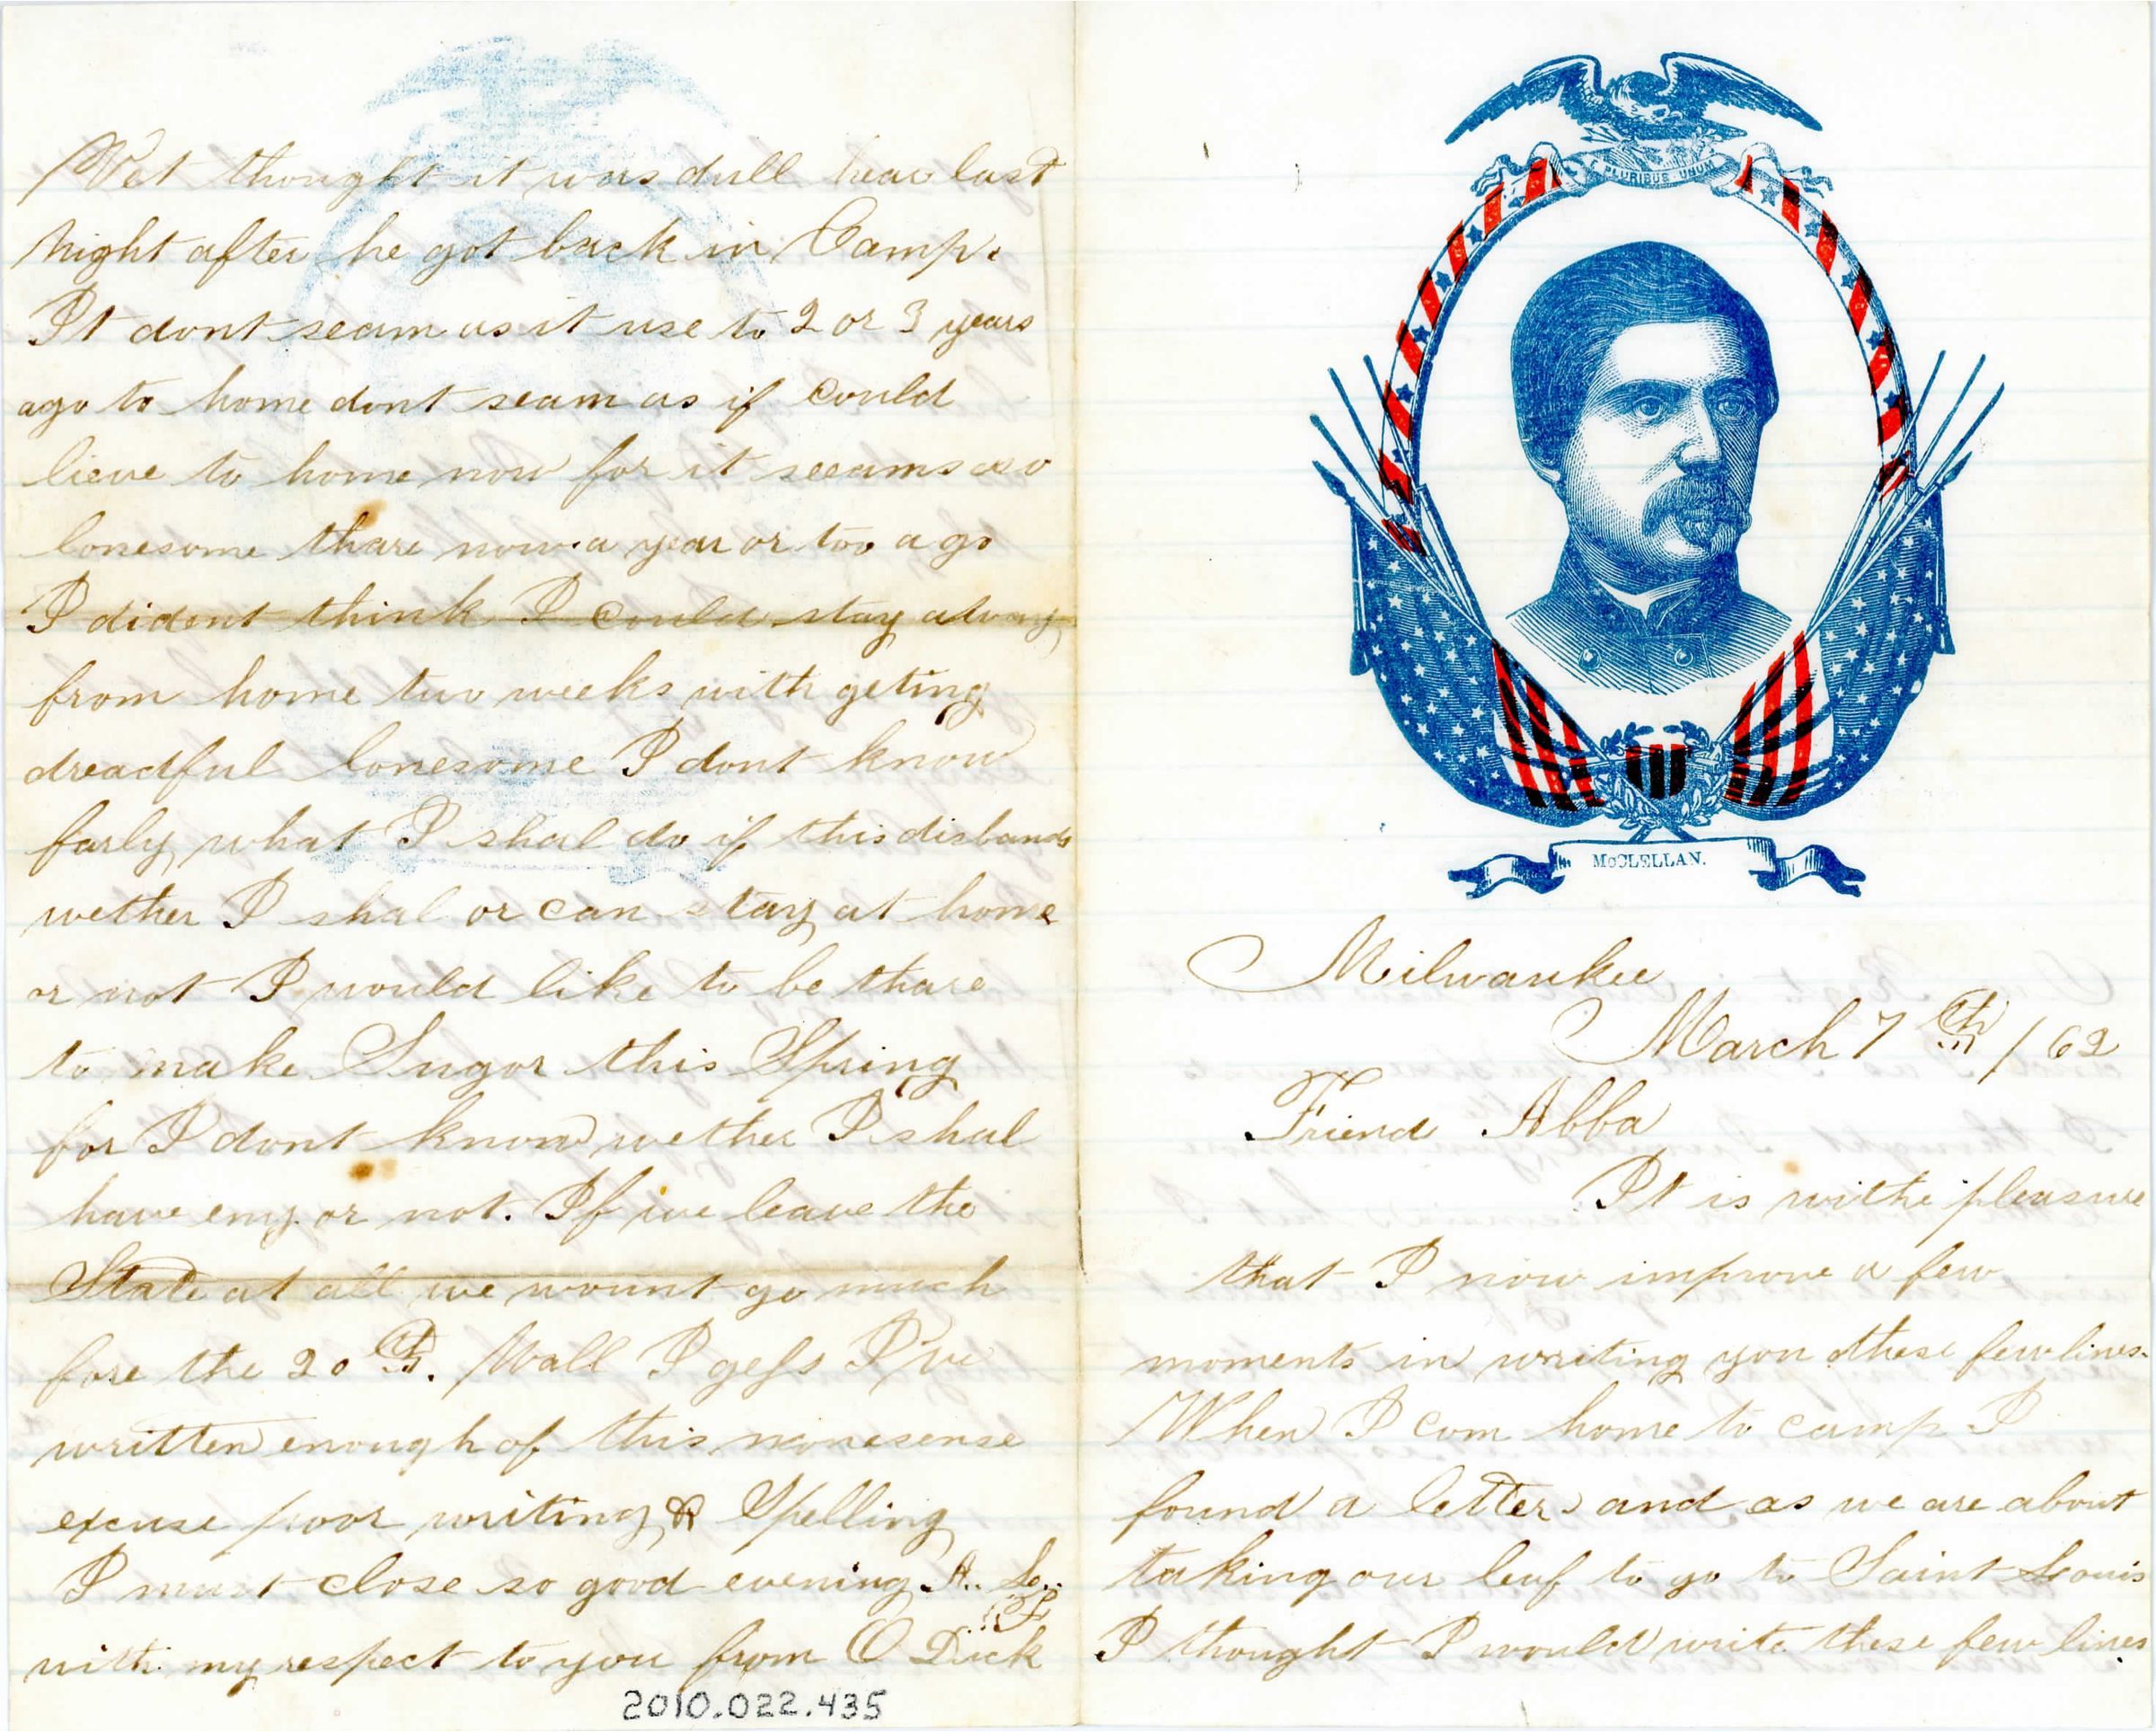 Vet thought it was dull hear last
night after he got back in Camp.
It dont seam as it use to 2 or 3 years
ago to home dont seam as if could
lieve to home now for it seeams so
lonesome thare now a year or too ago
I dident think I could stay away
from home two weeks with geting
dreadful lonesome I dont know
farly what I shal do if this disbands
wether I shal or can stay at home
or not I would like to be thare
to make Sugor this Spring
for I dont know wether I shal
have eny or not. If we leave the
State at all we wount go much
fore the 20th. Wall I gess I've
written enough of this nonesense
excuse poor writing & Spelling
I must close so good evening A.. L..
F
with my respect to you from O Dick
2010.022.435
E PLURIBUS UNUM
McCLELLAN.
Milwaukee
March 7th / 62
Friend Abba
It is withe pleasure
that I now improve a few
moments in writing you these few lines.
When I com home to camp I
found a letter and as we are about
taking our leaf to go to Saint Louis
I thought I would write these few lines